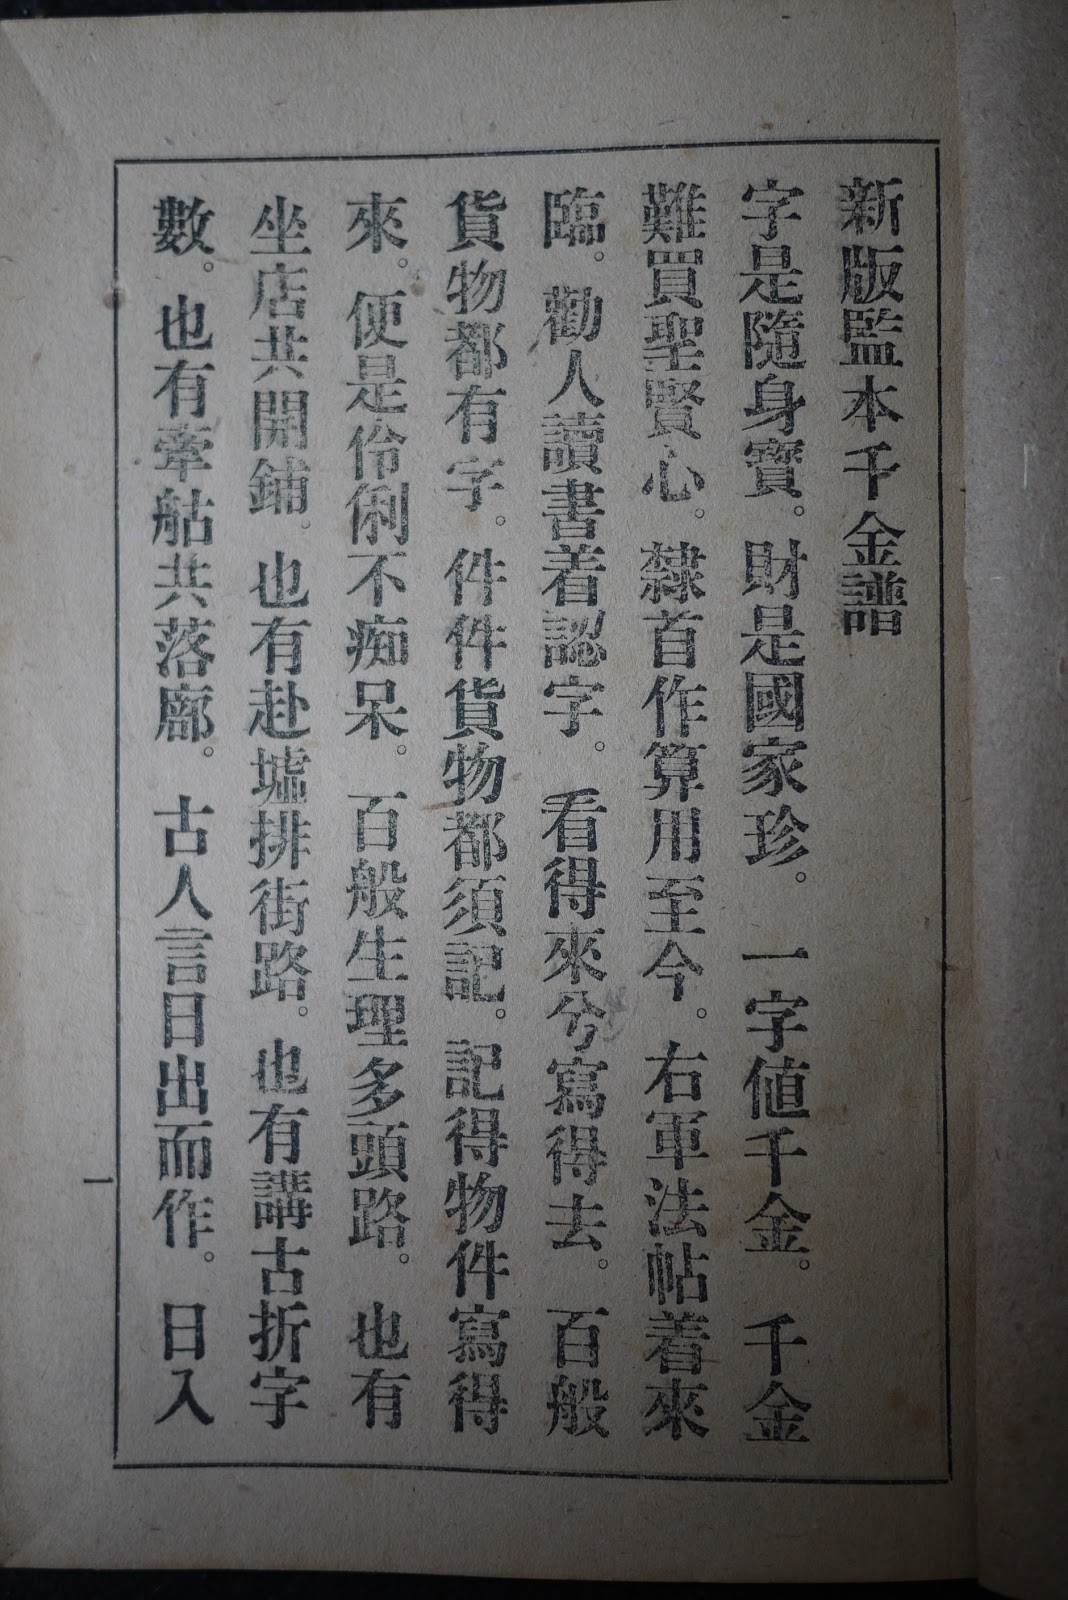 新版監本千金譜
字是隨身寳。財是國家珍。一字值千金。千金
難買聖賢心。隸首作算用至今。右軍法帖着來
臨。勸人讀書着認字。看得來兮寫得去。百般
貨物都有字。件件貨物都須記。記得物件寫得
來。便是伶俐不痴呆。百般生理多頭路。也有
坐店共開鋪。也有赴墟排街路。也有講古折字
數。也有牽䑩共落廍。古人言日出而作。日入
一